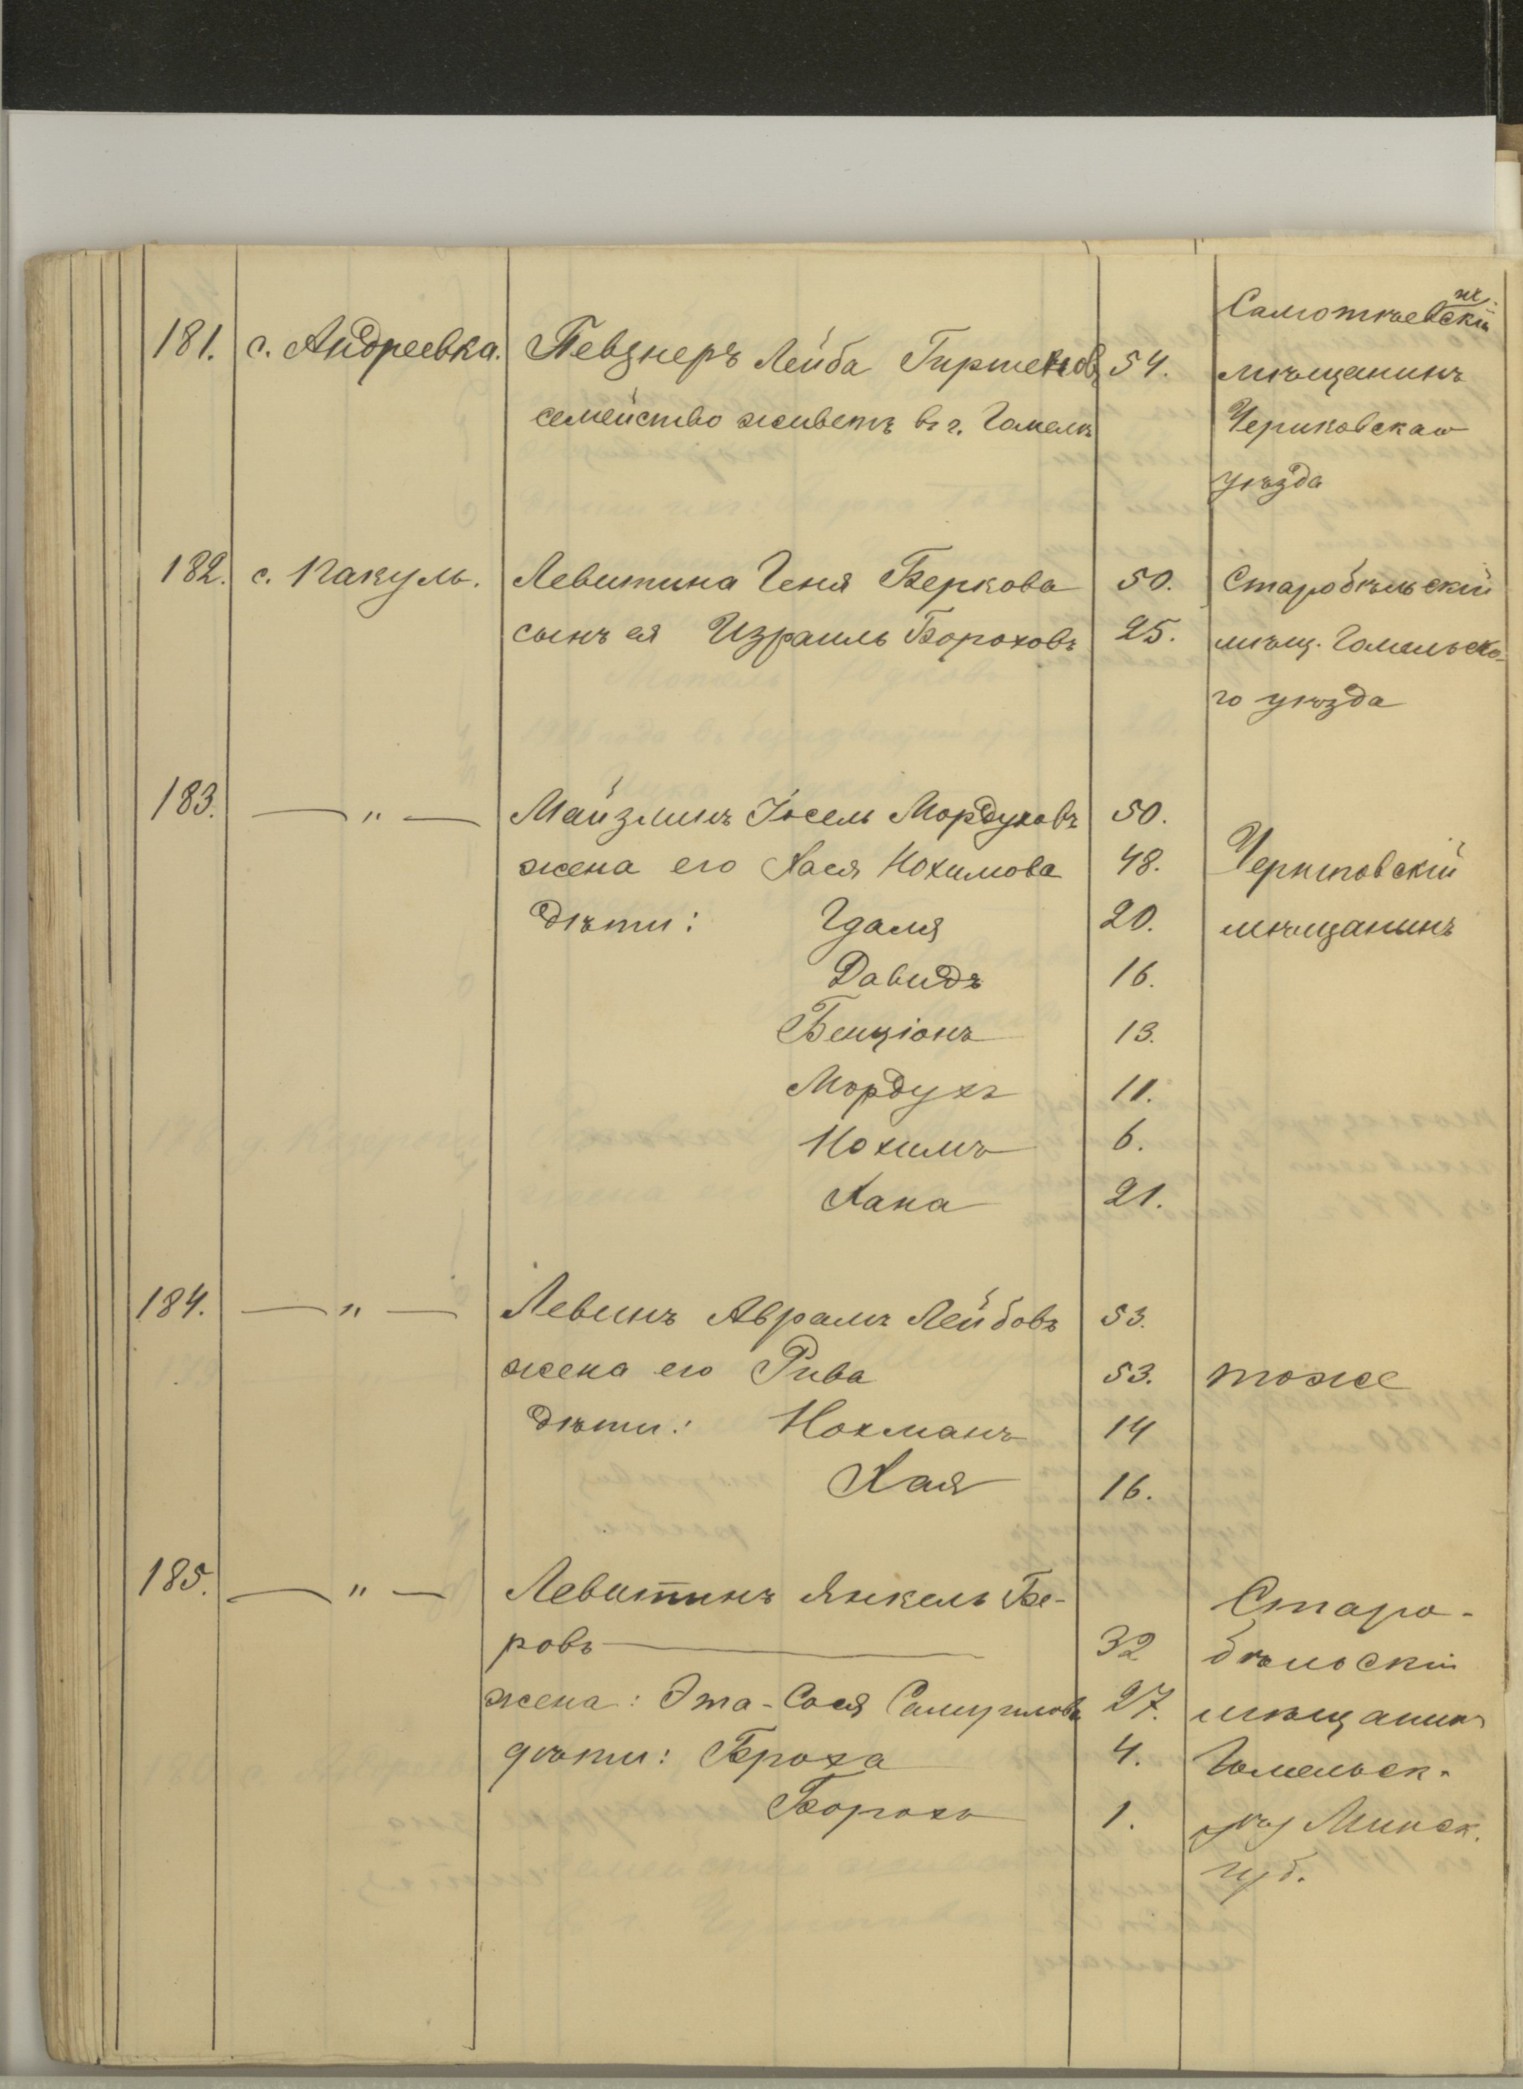 Самотѣевскій
181. с. Андреевка. Певзнеръ Лейба Гиршеновъ 54. мѣщанинъ
семейство живетъ въ г. Гомелѣ Чериковскаго
уѣзда
182. с. Пакуль. Левитина Геня Беркова 50. Старобѣльскій
сынъ ея Израиль Бороховъ 25. мѣщ. Гомельска-
го уѣзда
183. — " — Майзлинъ Іосель Мордуховъ 50.
жена его Хася Нохимова 48. Черниговскій
дѣти: Гдаля 20. мѣщанинъ
Давидъ 16.
Бенціонъ 13.
Мордухъ 11.
Нохимъ 6.
Хана 21.
184. — " — Левинъ Аврамъ Лейбовъ 53.
жена его Рива 53. тоже
дѣти: Нохманъ 14
Хая 16.
185. — " — Левитинъ Янкель Бе- Старо-
ровъ — 32 бѣльскій
жена: Эта-Сося Самуилова 27. мѣщанинъ
дѣти: Броха 4. Гомельск.
Борохъ 1. уѣз Минск.
губ.